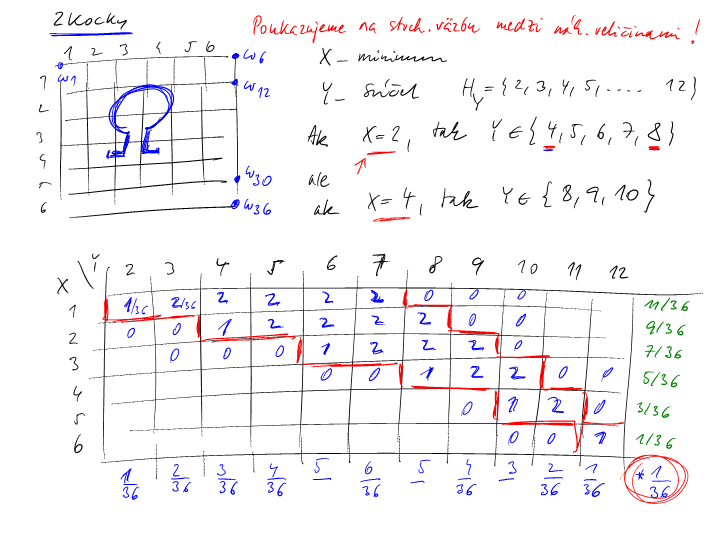 2 Kocky
Poukazujeme na stoch. väzbu medzi náh. veličinami !
1 2 3 4 5 6
ω1 ω6
X – minimum
1 ω12
Y – súčet H_Y = {2, 3, 4, 5, .... 12}
2
Ω
Ak X=2, tak Y ∈ {4, 5, 6, 7, 8}
3
4
5 ω30
ale
ak X=4, tak Y ∈ {8, 9, 10}
6 ω36
X \ Y 2 3 4 5 6 7 8 9 10 11 12
1 1/36 2/36 2 2 2 2 0 0 0 11/36
2 0 0 1 2 2 2 2 0 0 9/36
3 0 0 0 1 2 2 2 0 7/36
4 0 0 1 2 2 0 0 5/36
5 0 1 2 0 3/36
6 0 0 1 1/36
1/36 2/36 3/36 4/36 5 6/36 5 4/36 3 2/36 1/36 * 1/36